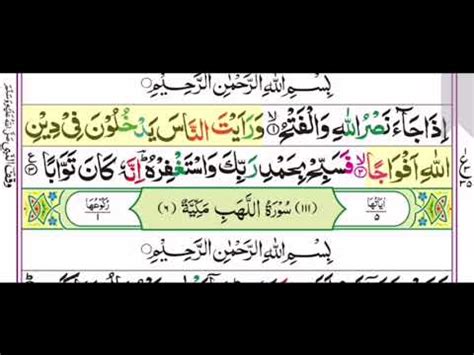 بِسْمِ اللهِ الرَّحْمٰنِ الرَّحِيْمِ
اِذَا جَآءَ نَصْرُ اللهِ وَالْفَتْحُ ۙ﴿۱﴾ وَرَاَيْتَ النَّاسَ يَدْخُلُوْنَ فِيْ دِيْنِ
اللهِ اَفْوَاجًا ۙ﴿۲﴾ فَسَبِّحْ بِحَمْدِ رَبِّكَ وَاسْتَغْفِرْهُ ؕ اِنَّهٗ كَانَ تَوَّابًا ﴿۳﴾
اٰيَاتُهَا ۵ (۱۱۱) سُوْرَةُ اللَّهَبِ مَكِّيَّةٌ (۶) رُكُوْعُهَا ۱
بِسْمِ اللهِ الرَّحْمٰنِ الرَّحِيْمِ